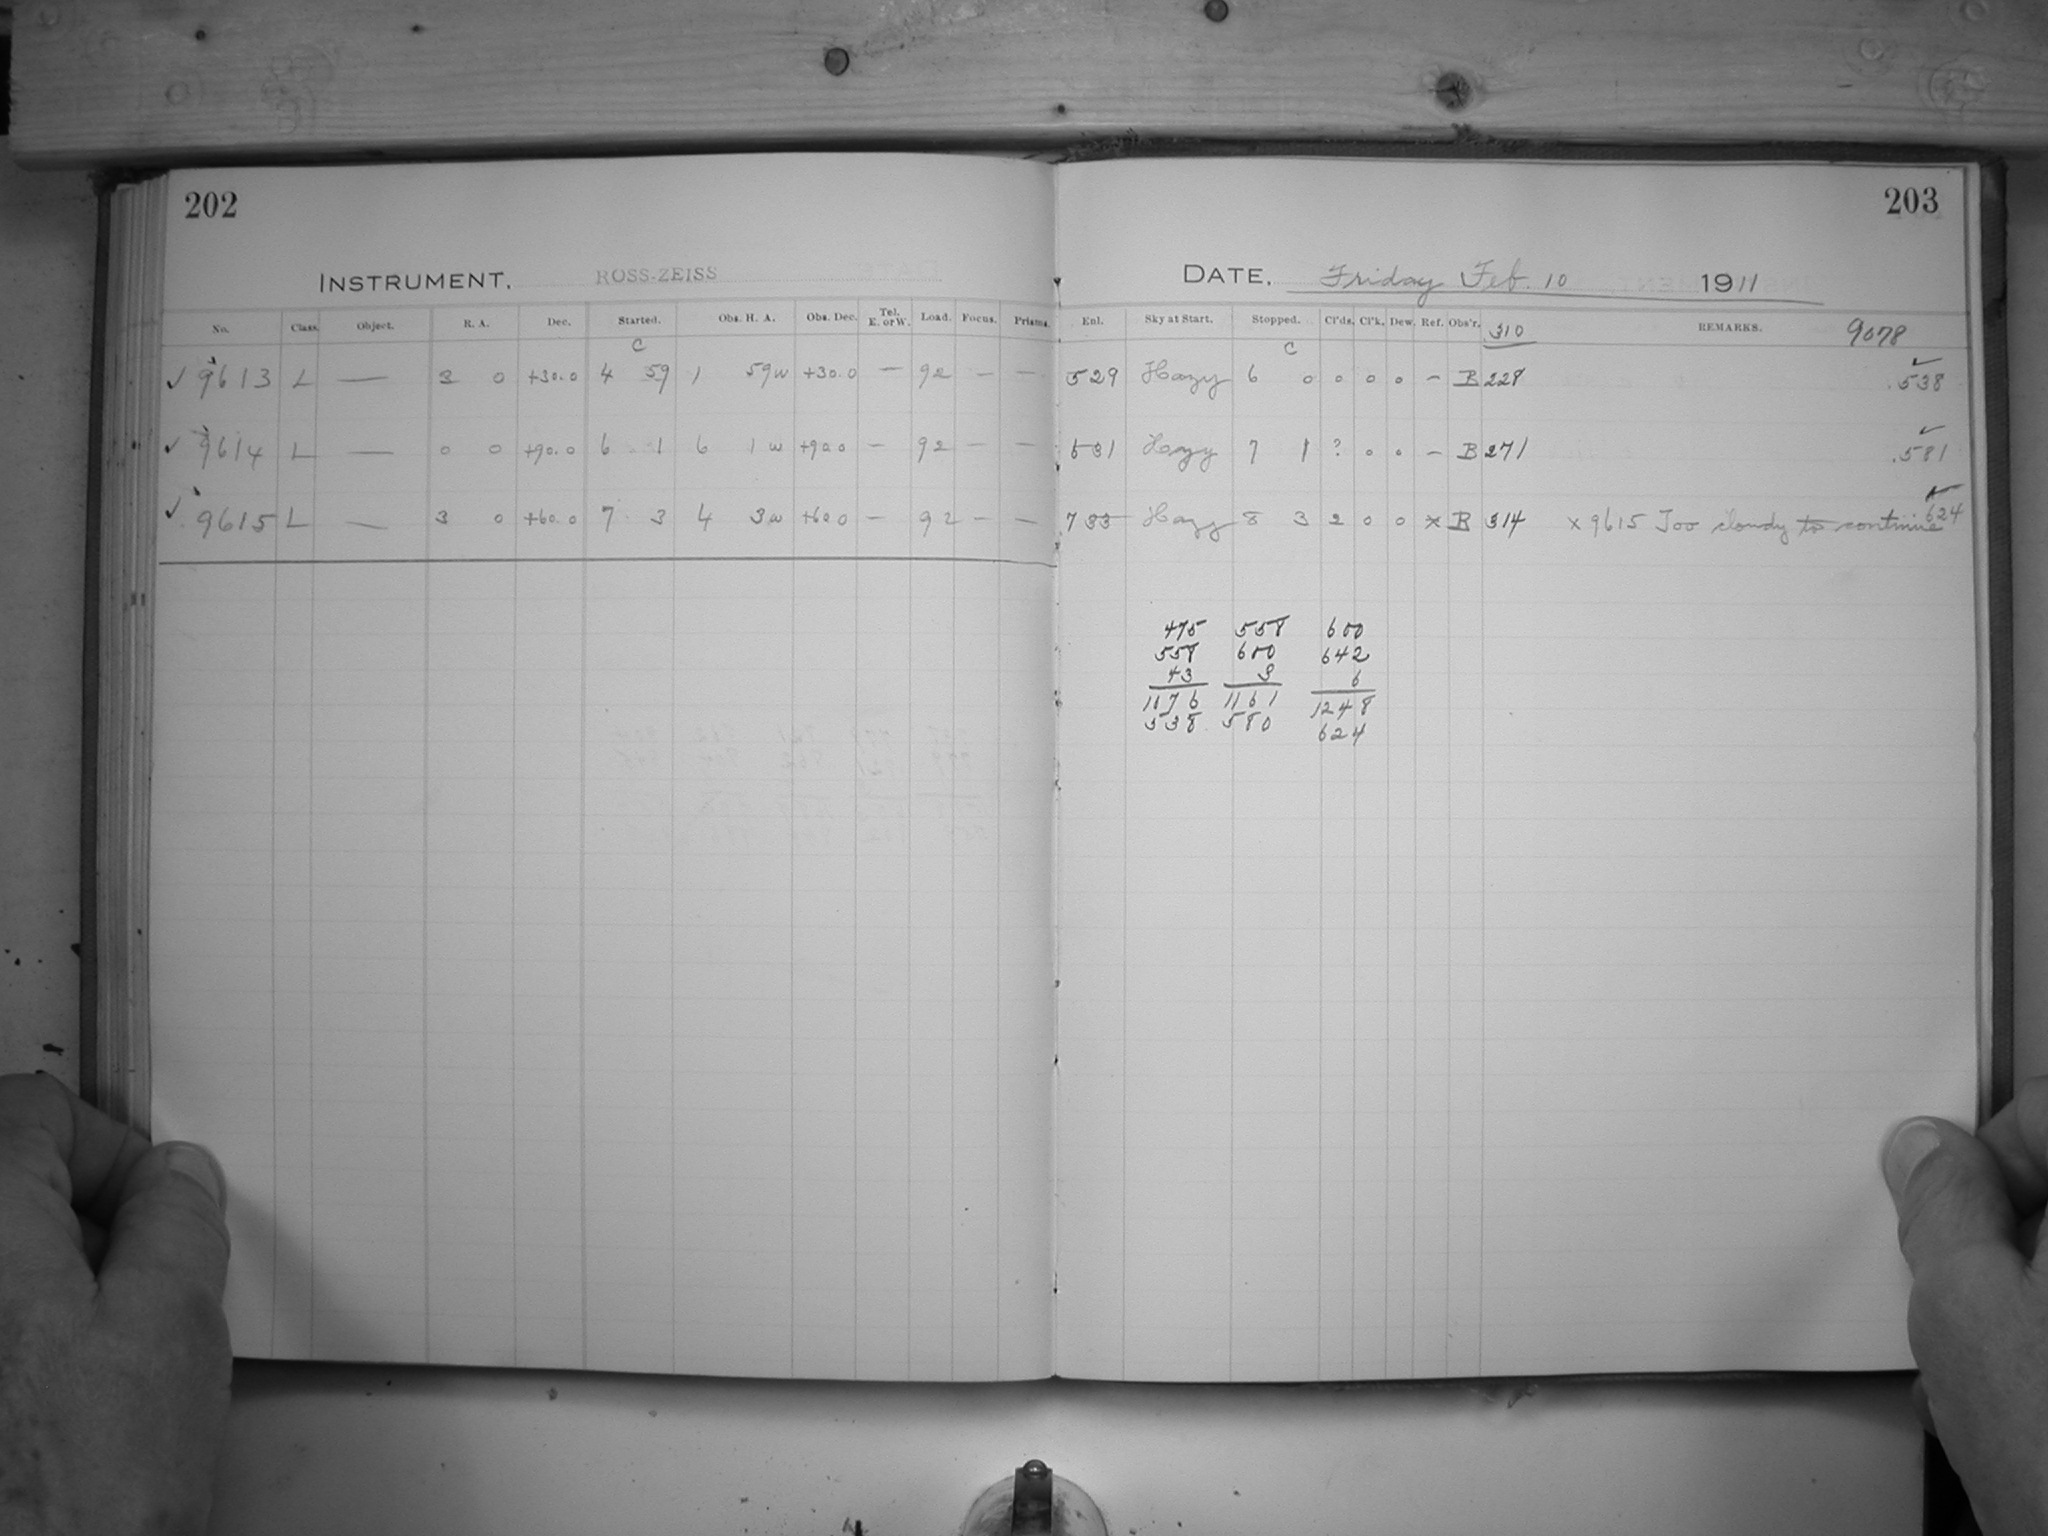 202
INSTRUMENT. ROSS-ZEISS
No. Class. Object. R. A. Dec. Started. Obs. H. A. Obs. Dec. Tel. E. or W. Load. Focus. Prisms.
C
✓ 9613 L — 3 0 +30.0 4 59 1 59w +30.0 — 92 — —
✓ 9614 L — 0 0 +90.0 6 1 6 1w +90.0 — 92 — —
✓ 9615 L — 3 0 +60.0 7 3 4 3w +60.0 — 92 — —
203
DATE. Friday Feb. 10 1911
Enl. Sky at Start. Stopped. Cl'ds. Cl'k. Dew. Ref. Obs'r. 310 REMARKS. 9078
C
529 Hazy 6 0 0 0 0 — B 228 .538
631 Hazy 7 1 ? 0 0 — B 271 .581
733 Hazy 8 3 2 0 0 x B 314 x 9615 Too cloudy to continue 624
475 558 600
558 600 642
43 3 6
1176 1161 1248
538 580 624